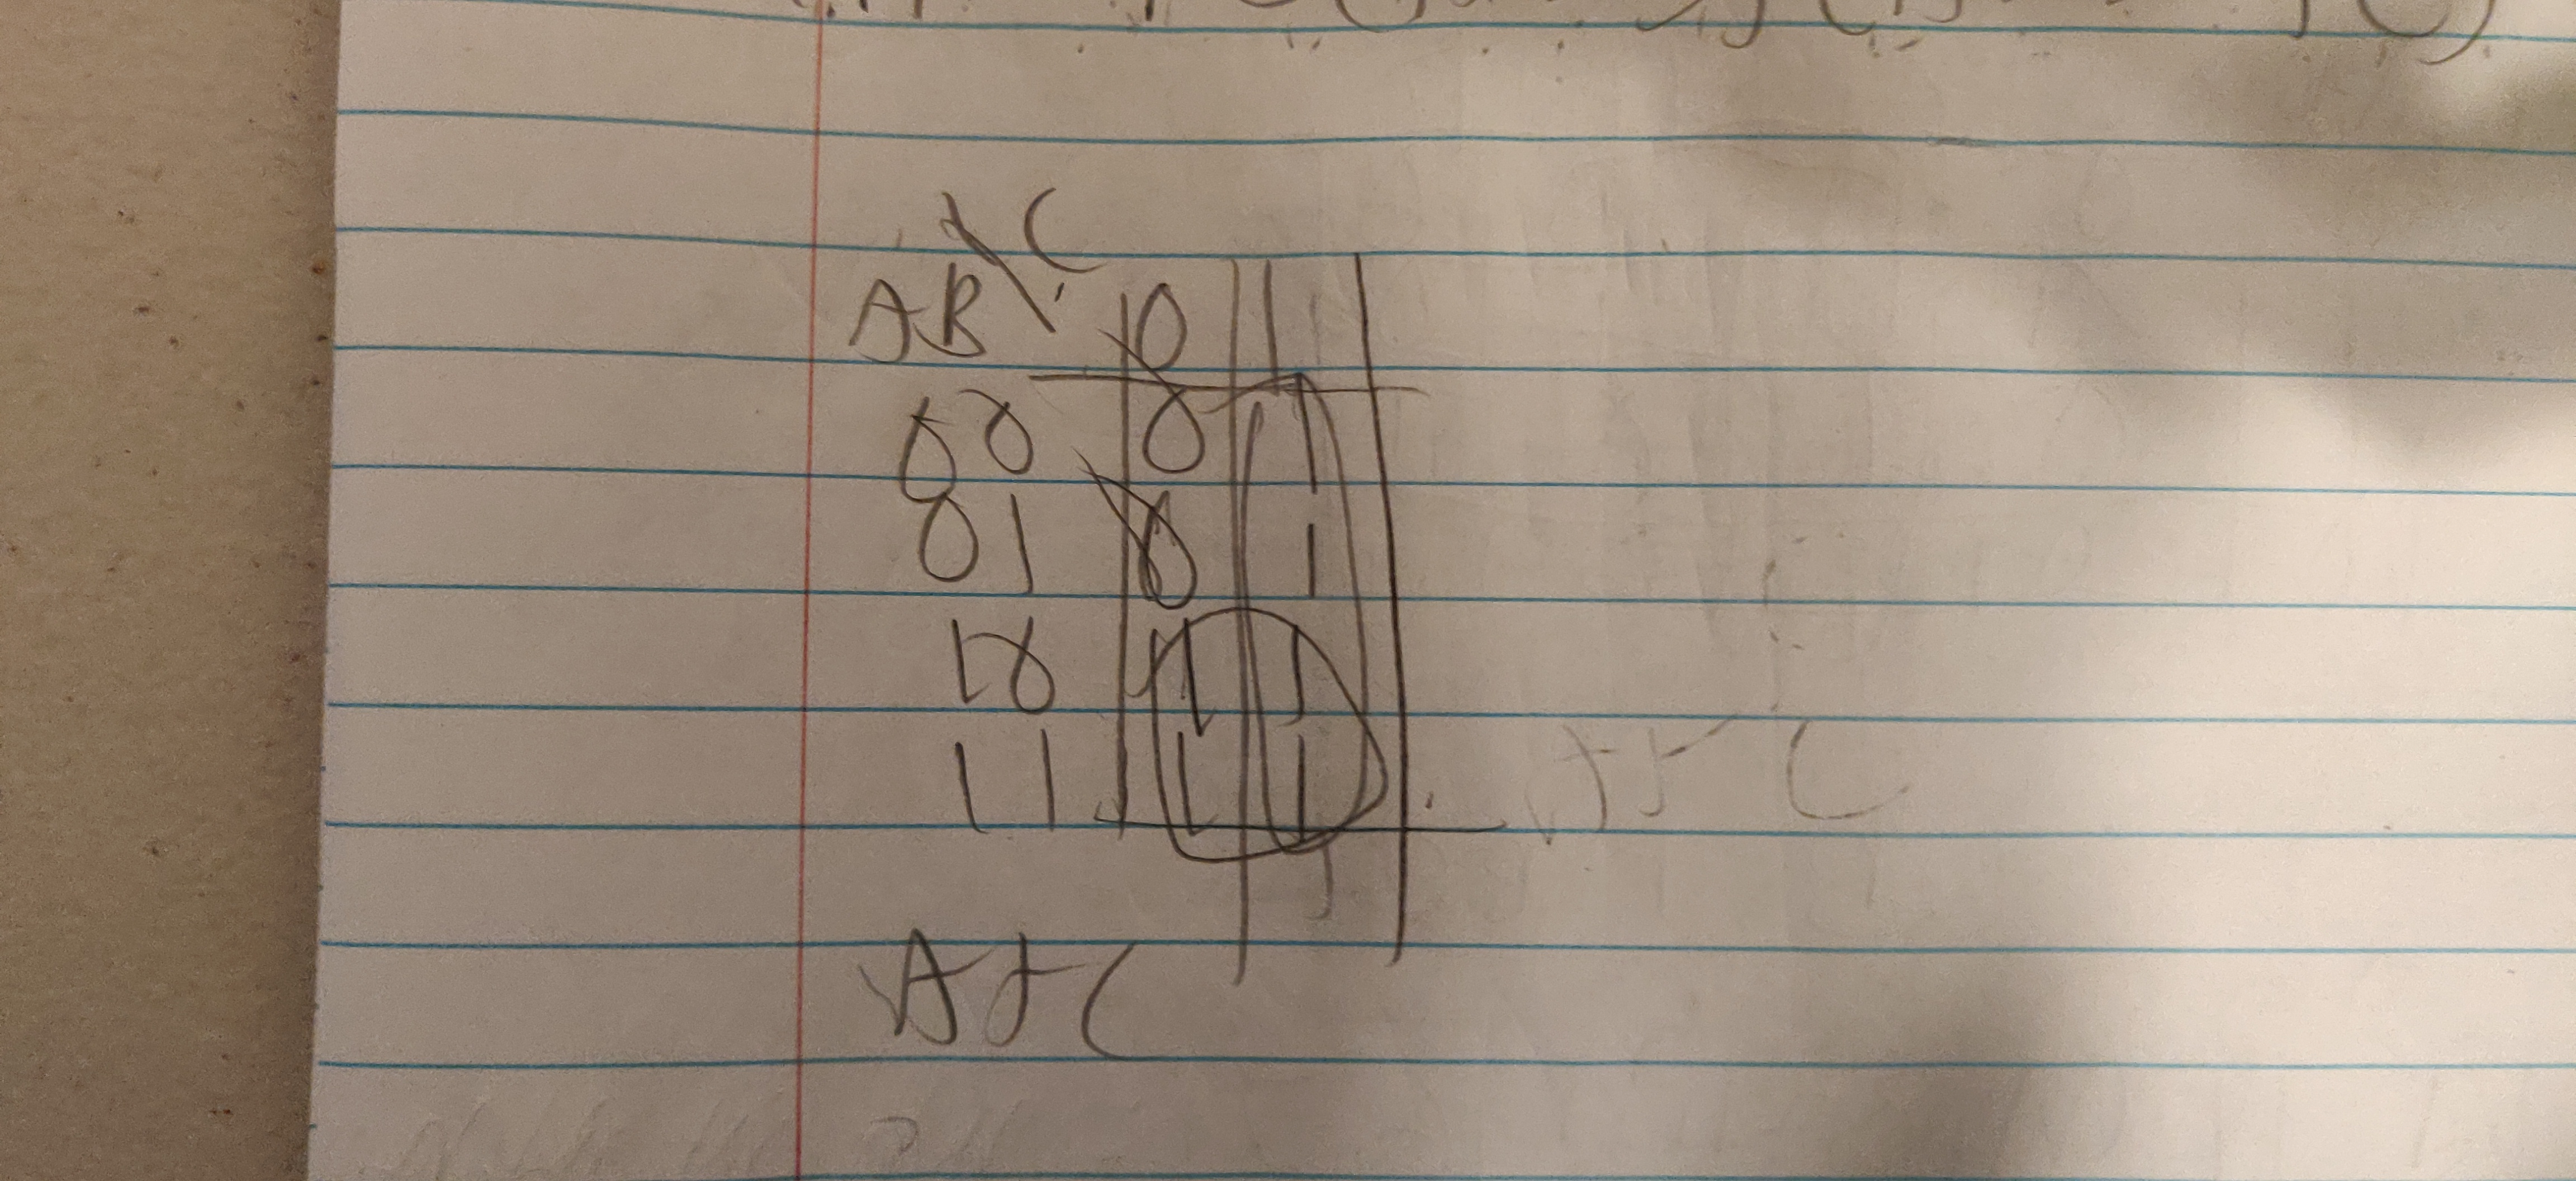 C
AB 0 1
00 0 1
01 0 1
10 1 1
11 1 1
A+C
A+C